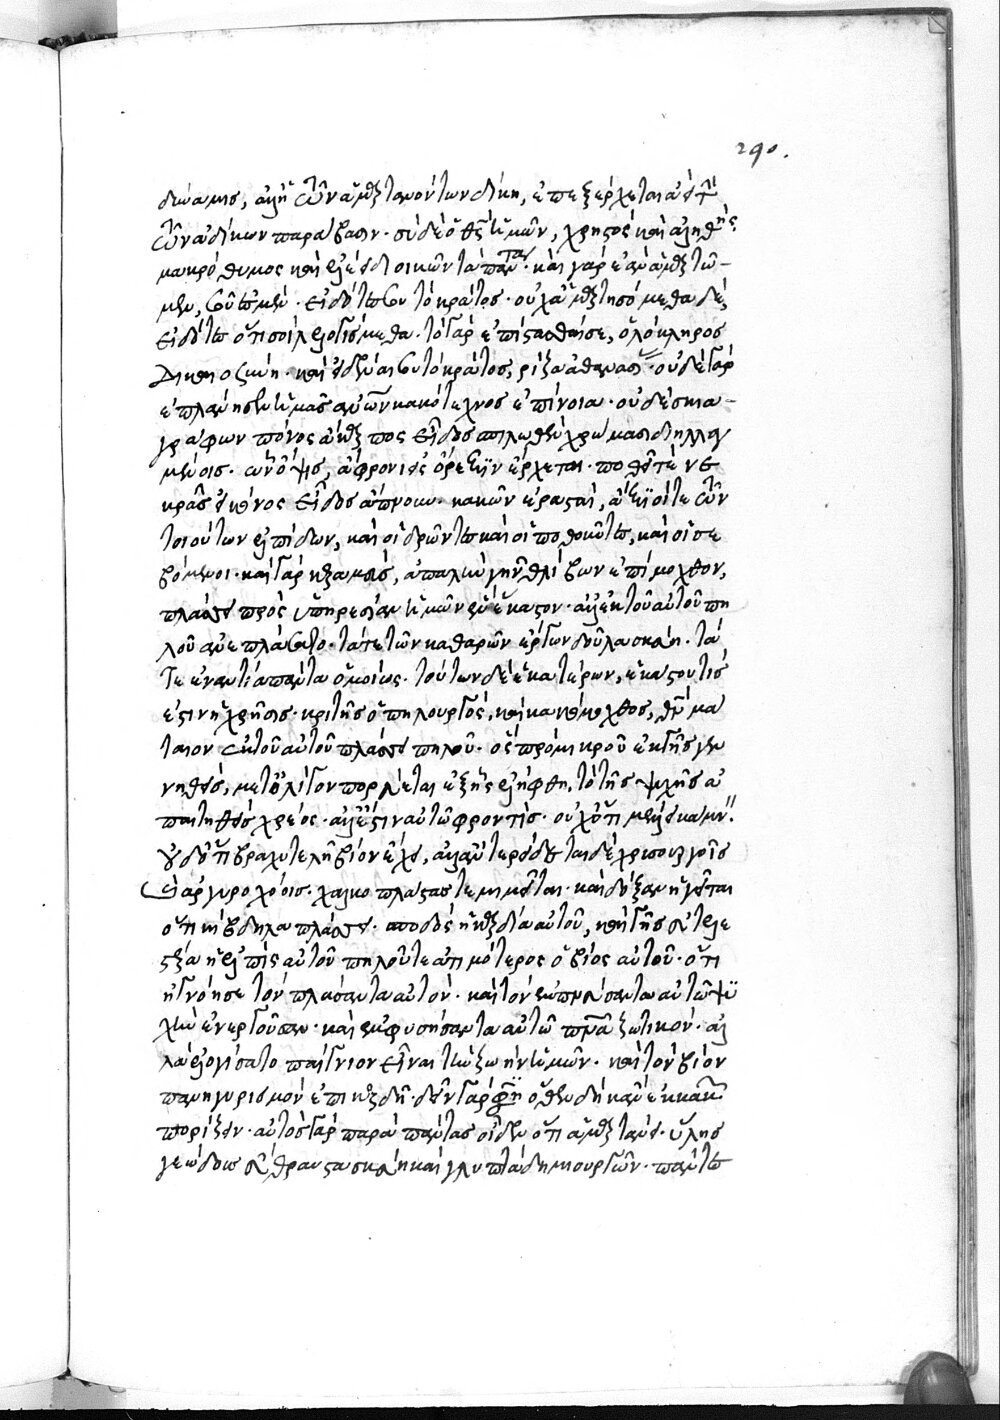 δύναμις, ἀλλ' ἡ τῶν ἁμαρτανόντων δίκη, ἐπεξέρχεται ἀεὶ τὴν
τῶν ἀδίκων παράβασιν· σὺ δὲ ὁ θς ἡμῶν, χρηστὸς καὶ ἀληθής·
μακρόθυμος καὶ ἐλέει διοικῶν τὰ πάντα· καὶ γὰρ ἐὰν ἁμάρτω-
μεν, σοῦ ἐσμέν· εἰδότες σου τὸ κράτος· οὐχ ἁμαρτησόμεθα δὲ,
εἰδότες ὅτι σοὶ λελογίσμεθα· τὸ γὰρ ἐπίστασθαί σε, ὁλόκληρος
δικαιοσύνη· καὶ εἰδέναι σου τὸ κράτος, ῥίζα ἀθανασίας· οὐδὲ γὰρ
ἐπλάνησεν ἡμᾶς ἀνῶν κακότεχνος ἐπίνοια· οὐδὲ σκια-
γράφων πόνος ἄκαρπος εἶδος σπιλωθὲν χρώμασι διηλλαγ
μένοις· ὧν ὄψις, ἄφροσιν εἰς ὄρεξιν ἔρχεται· ποθεῖ τὲ νε
κρᾶς εἰκόνος εἶδος ἄπνουν· κακῶν ἐρασταὶ, ἄξιοί τε τῶν
τοιούτων ἐλπίδων, καὶ οἱ δρῶντες καὶ οἱ ποθοῦντες, καὶ οἱ σε
βόμενοι· καὶ γὰρ κεραμεὺς, ἁπαλὴν γῆν θλίβων ἐπίμοχθον,
πλάσσει πρὸς ὑπηρεσίαν ἡμῶν ἓν ἕκαστον· ἀλλ' ἐκ τοῦ αὐτοῦ πη
λοῦ ἀνεπλάσατο· τά τε τῶν καθαρῶν ἔργων δοῦλα σκεύη· τά
τε ἐναντία πάντα ὁμοίως· τούτων δὲ ἑκατέρων, ἑκάστου τίς
ἐστιν ἡ χρῆσις· κριτὴς ὁ πηλουργός, καὶ κακόμοχθος, θν μά
ταιον ἐκ τοῦ αὐτοῦ πλάσσει πηλοῦ· ὃς πρὸ μικροῦ ἐκ γῆς γεν
νηθεὶς, μετ' ὀλίγον πορεύεται ἐξ ἧς ἐλήφθη, τὸ τῆς ψυχῆς ἀ
παιτηθεὶς χρέος· ἀλλ' ἔστιν αὐτῷ φροντίς· οὐχ ὅτι μέλλει κάμνειν·
οὐδ' ὅτι βραχυτελῆ βίον ἔχει, ἀλλ' ἀντερείδεται δὲ χρυσουργοῖς
καὶ ἀργυροχόοις· χαλκοπλάστας τε μιμεῖται· καὶ δόξαν ἡγεῖται
ὅτι κίβδηλα πλάσσει· σποδὸς ἡ καρδία αὐτοῦ, καὶ γῆς εὐτελε
στέρα ἡ ἐλπὶς αὐτοῦ πηλοῦ τε ἀτιμότερος ὁ βίος αὐτοῦ· ὅτι
ἠγνόησε τὸν πλάσαντα αὐτόν· καὶ τὸν ἐμπνεύσαντα αὐτῷ ψυ
χὴν ἐνεργοῦσαν· καὶ ἐμφυσήσαντα αὐτῷ πνα ζωτικόν· ἀλ
λὰ ἐλογίσατο παίγνιον εἶναι τὴν ζωὴν ἡμῶν· καὶ τὸν βίον
πανηγυρισμὸν ἐπικερδῆ· δεῖν γάρ φησιν ὅθεν δὴ κἂν ἐκ κακοῦ
πορίζειν· αὐτὸς γὰρ παρὰ πάντας οἶδεν ὅτι ἁμαρτάνει· ὕλης
γεώδους εὔθραυστα σκεύη καὶ γλυπτὰ δημιουργῶν· πάντες